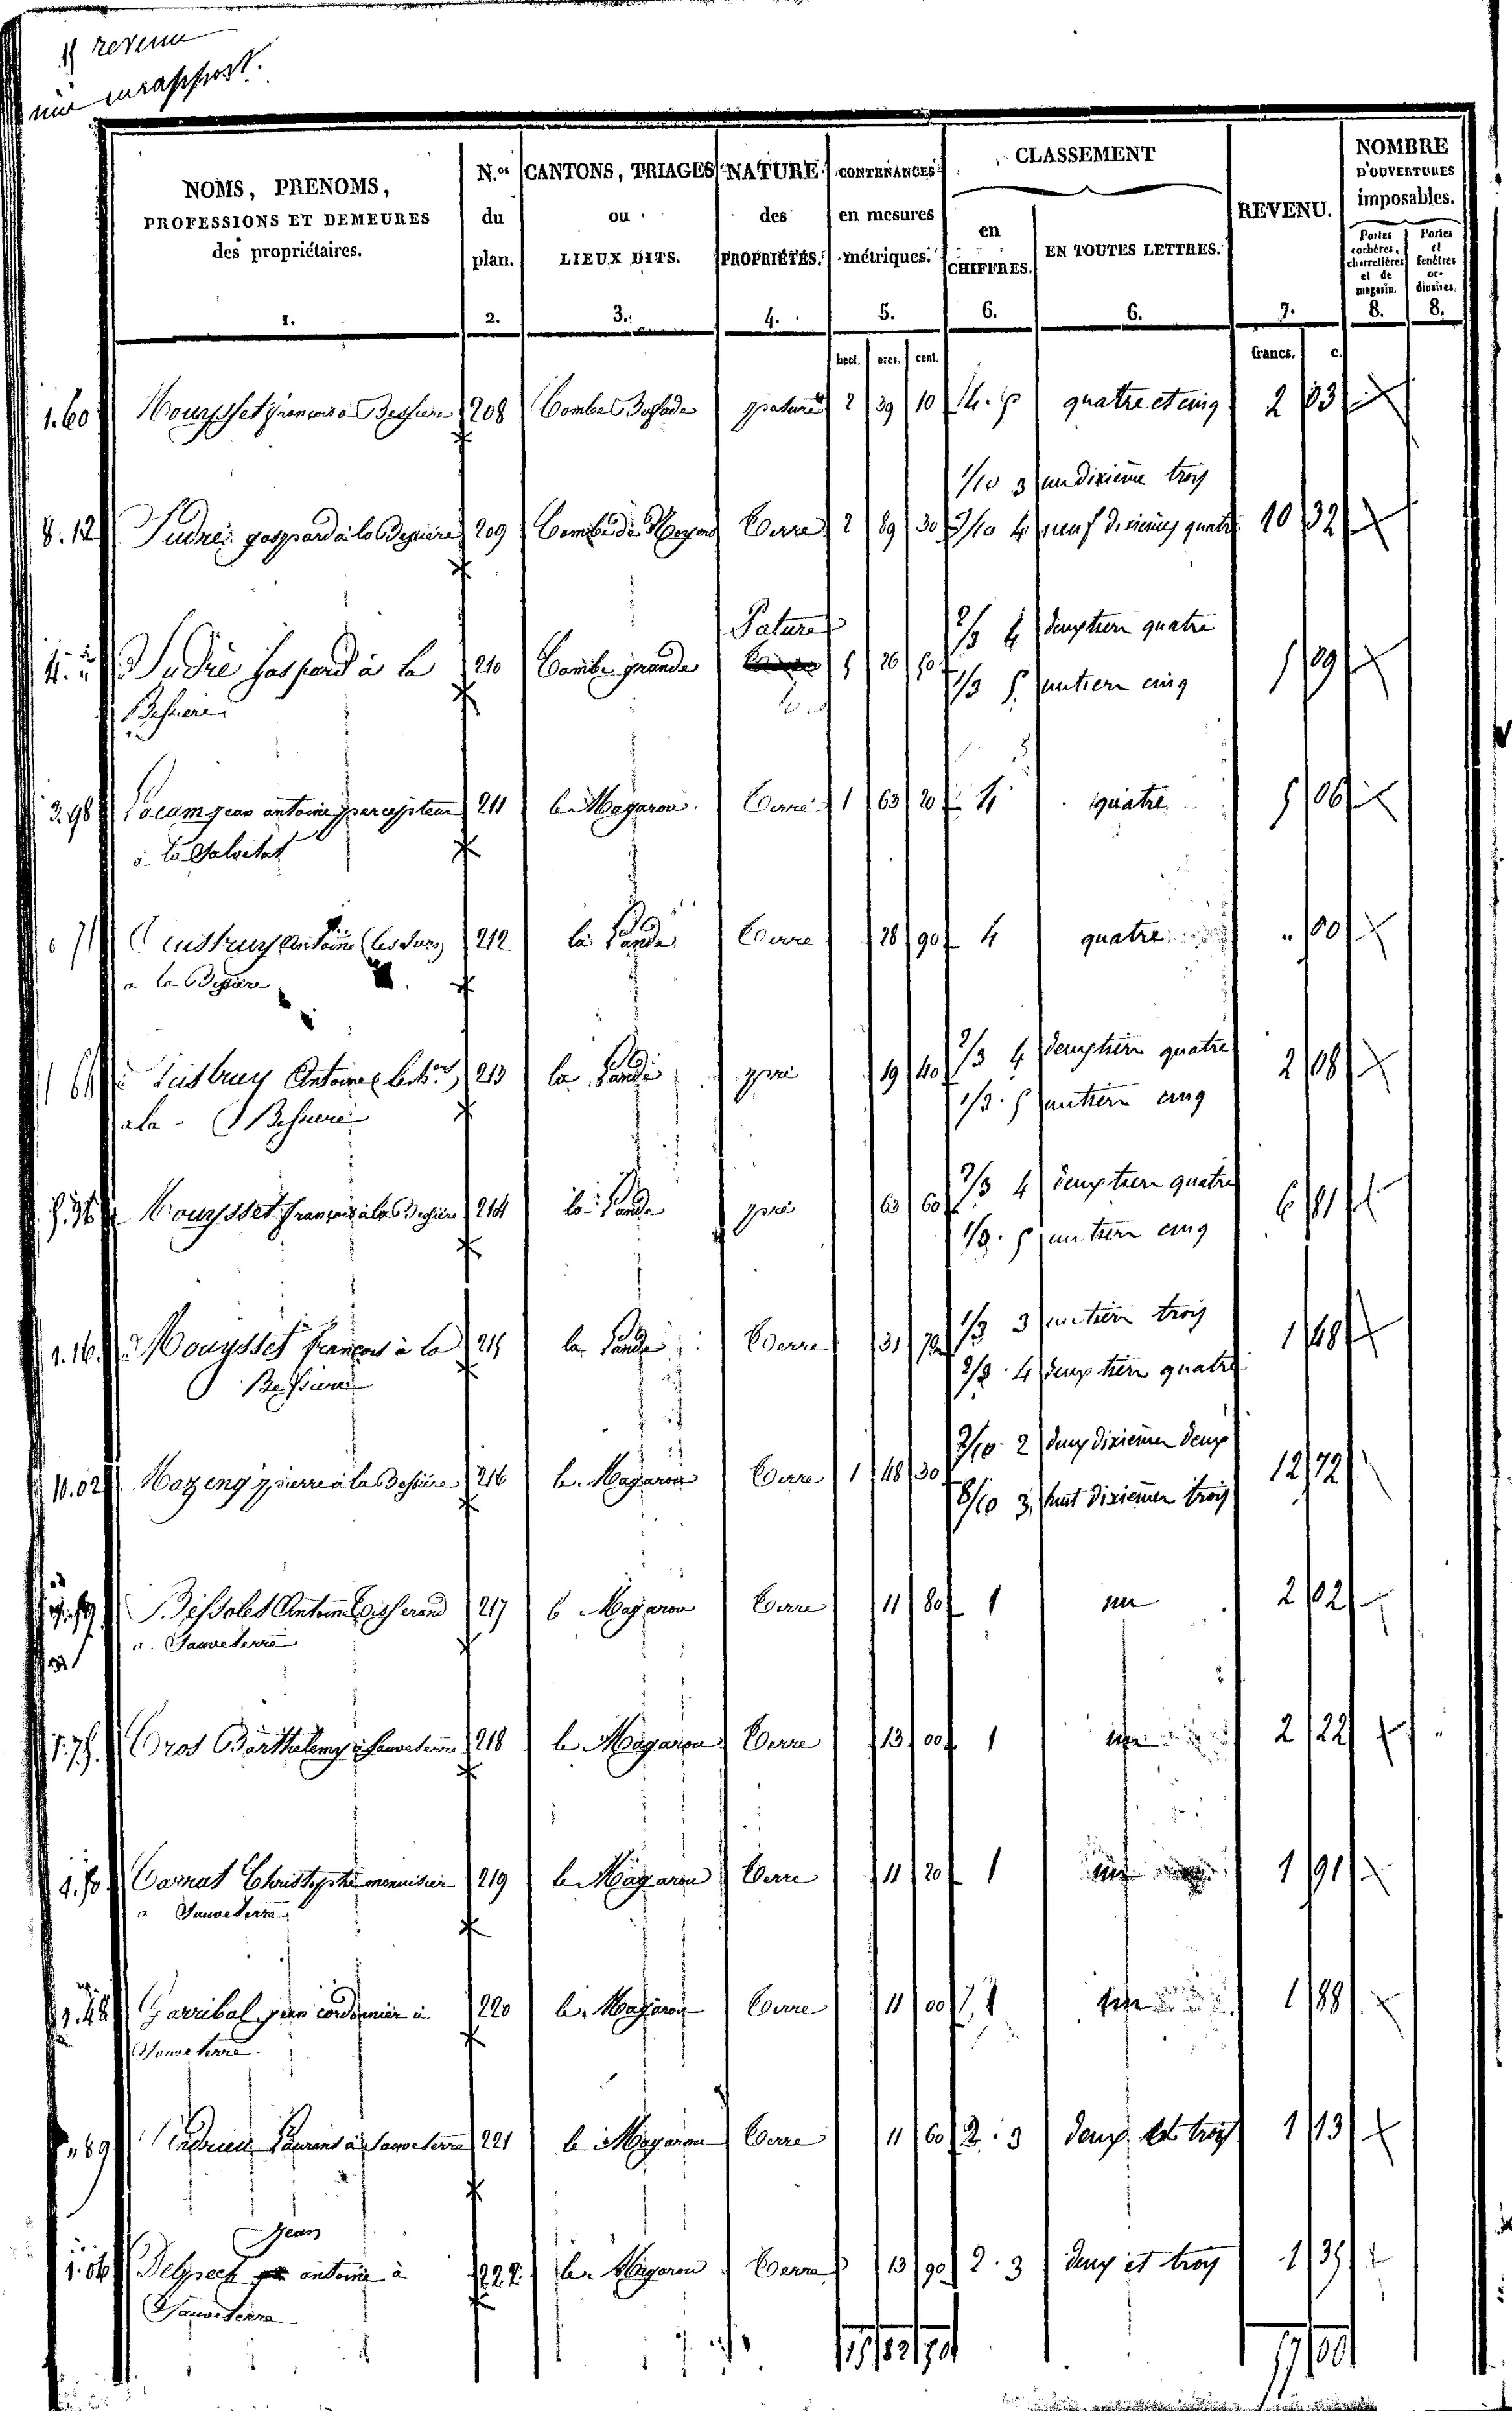 revenu
NOMS, PRENOMS,
PROFESSIONS ET DEMEURES
des propriétaires.
1.
N.os
du
plan.
2.
CANTONS, TRIAGES
ou
LIEUX DITS.
3.
NATURE
des
PROPRIÉTÉS.
4.
CONTENANCES
en mesures
métriques.
5.
CLASSEMENT
en
CHIFFRES.
6.
EN TOUTES LETTRES.
6.
REVENU.
7.
NOMBRE
D'OUVERTURES
imposables.
Portes
cochères,
charretières
et de
magasin.
8.
Portes
et
fenêtres
or-
dinaires.
8.
hect. ares. cent. francs. c.
1.60 Mouysset françois à Bessiere 208 Combe pature 2 39 10 4. 5 quatre et cinq 2 03
1/10 3 un dixième trois
8.12 Sudre gaspard à la Bessiere 209 Combe de Terre 2 89 30 9/10 4 neuf dixiemes quatre 10 32
Pature 2/3 4 deux tiers quatre
Sudre Gaspard à la 210 Combe grande 5 26 50 1/3 5 un tiers cinq 5 09
Bessiere
3.98 Pacam jean antoine percepteur 211 le Magarou Terre 1 63 20 4 quatre 5 06
à la Salvitat
71 Antoine 212 la Lande Terre 28 90 4 quatre
à la Bessiere
2/3 4 deux tiers quatre
Antoine 213 la Lande pré 19 40 1/3 5 un tiers cinq 2 08
a la Bessiere
2/3 4 deux tiers quatre
5.36 Mouysset françois à la Bessiere 214 la Lande pré 63 60 1/3 5 un tiers cinq 6 81
1/3 3 un tiers trois
1.16 Mouysset françois à la 215 la Lande Terre 31 70 2/3 4 deux tiers quatre 1 48
Bessiere
2/10 2 deux dixiemes deux
10.02 Mazenq pierre à la Bessiere 216 le Magarou Terre 1 48 30 8/10 3 huit dixiemes trois 12 72
Bessoles Antoine Tisserand 217 le Magarou Terre 11 80 1 un 2 02
à Sauveterre
1.75 Cros Barthelemy à Sauveterre 218 le Magarou Terre 13 00 1 un 2 22
1.50 Carrat Christophe menuisier 219 le Magarou Terre 11 20 1 un 1 91
à Sauveterre
1.48 Garribal jean cordonnier à 220 le Magarou Terre 11 00 1 un 1 88
Sauveterre
" 89 Andrieu Laurens à Sauveterre 221 le Magarou Terre 11 60 2. 3 deux et trois 1 13
Jean
1.06 Delpech antoine à 222 le Magarou Terre 13 90 2. 3 deux et trois 1 35
Sauveterre